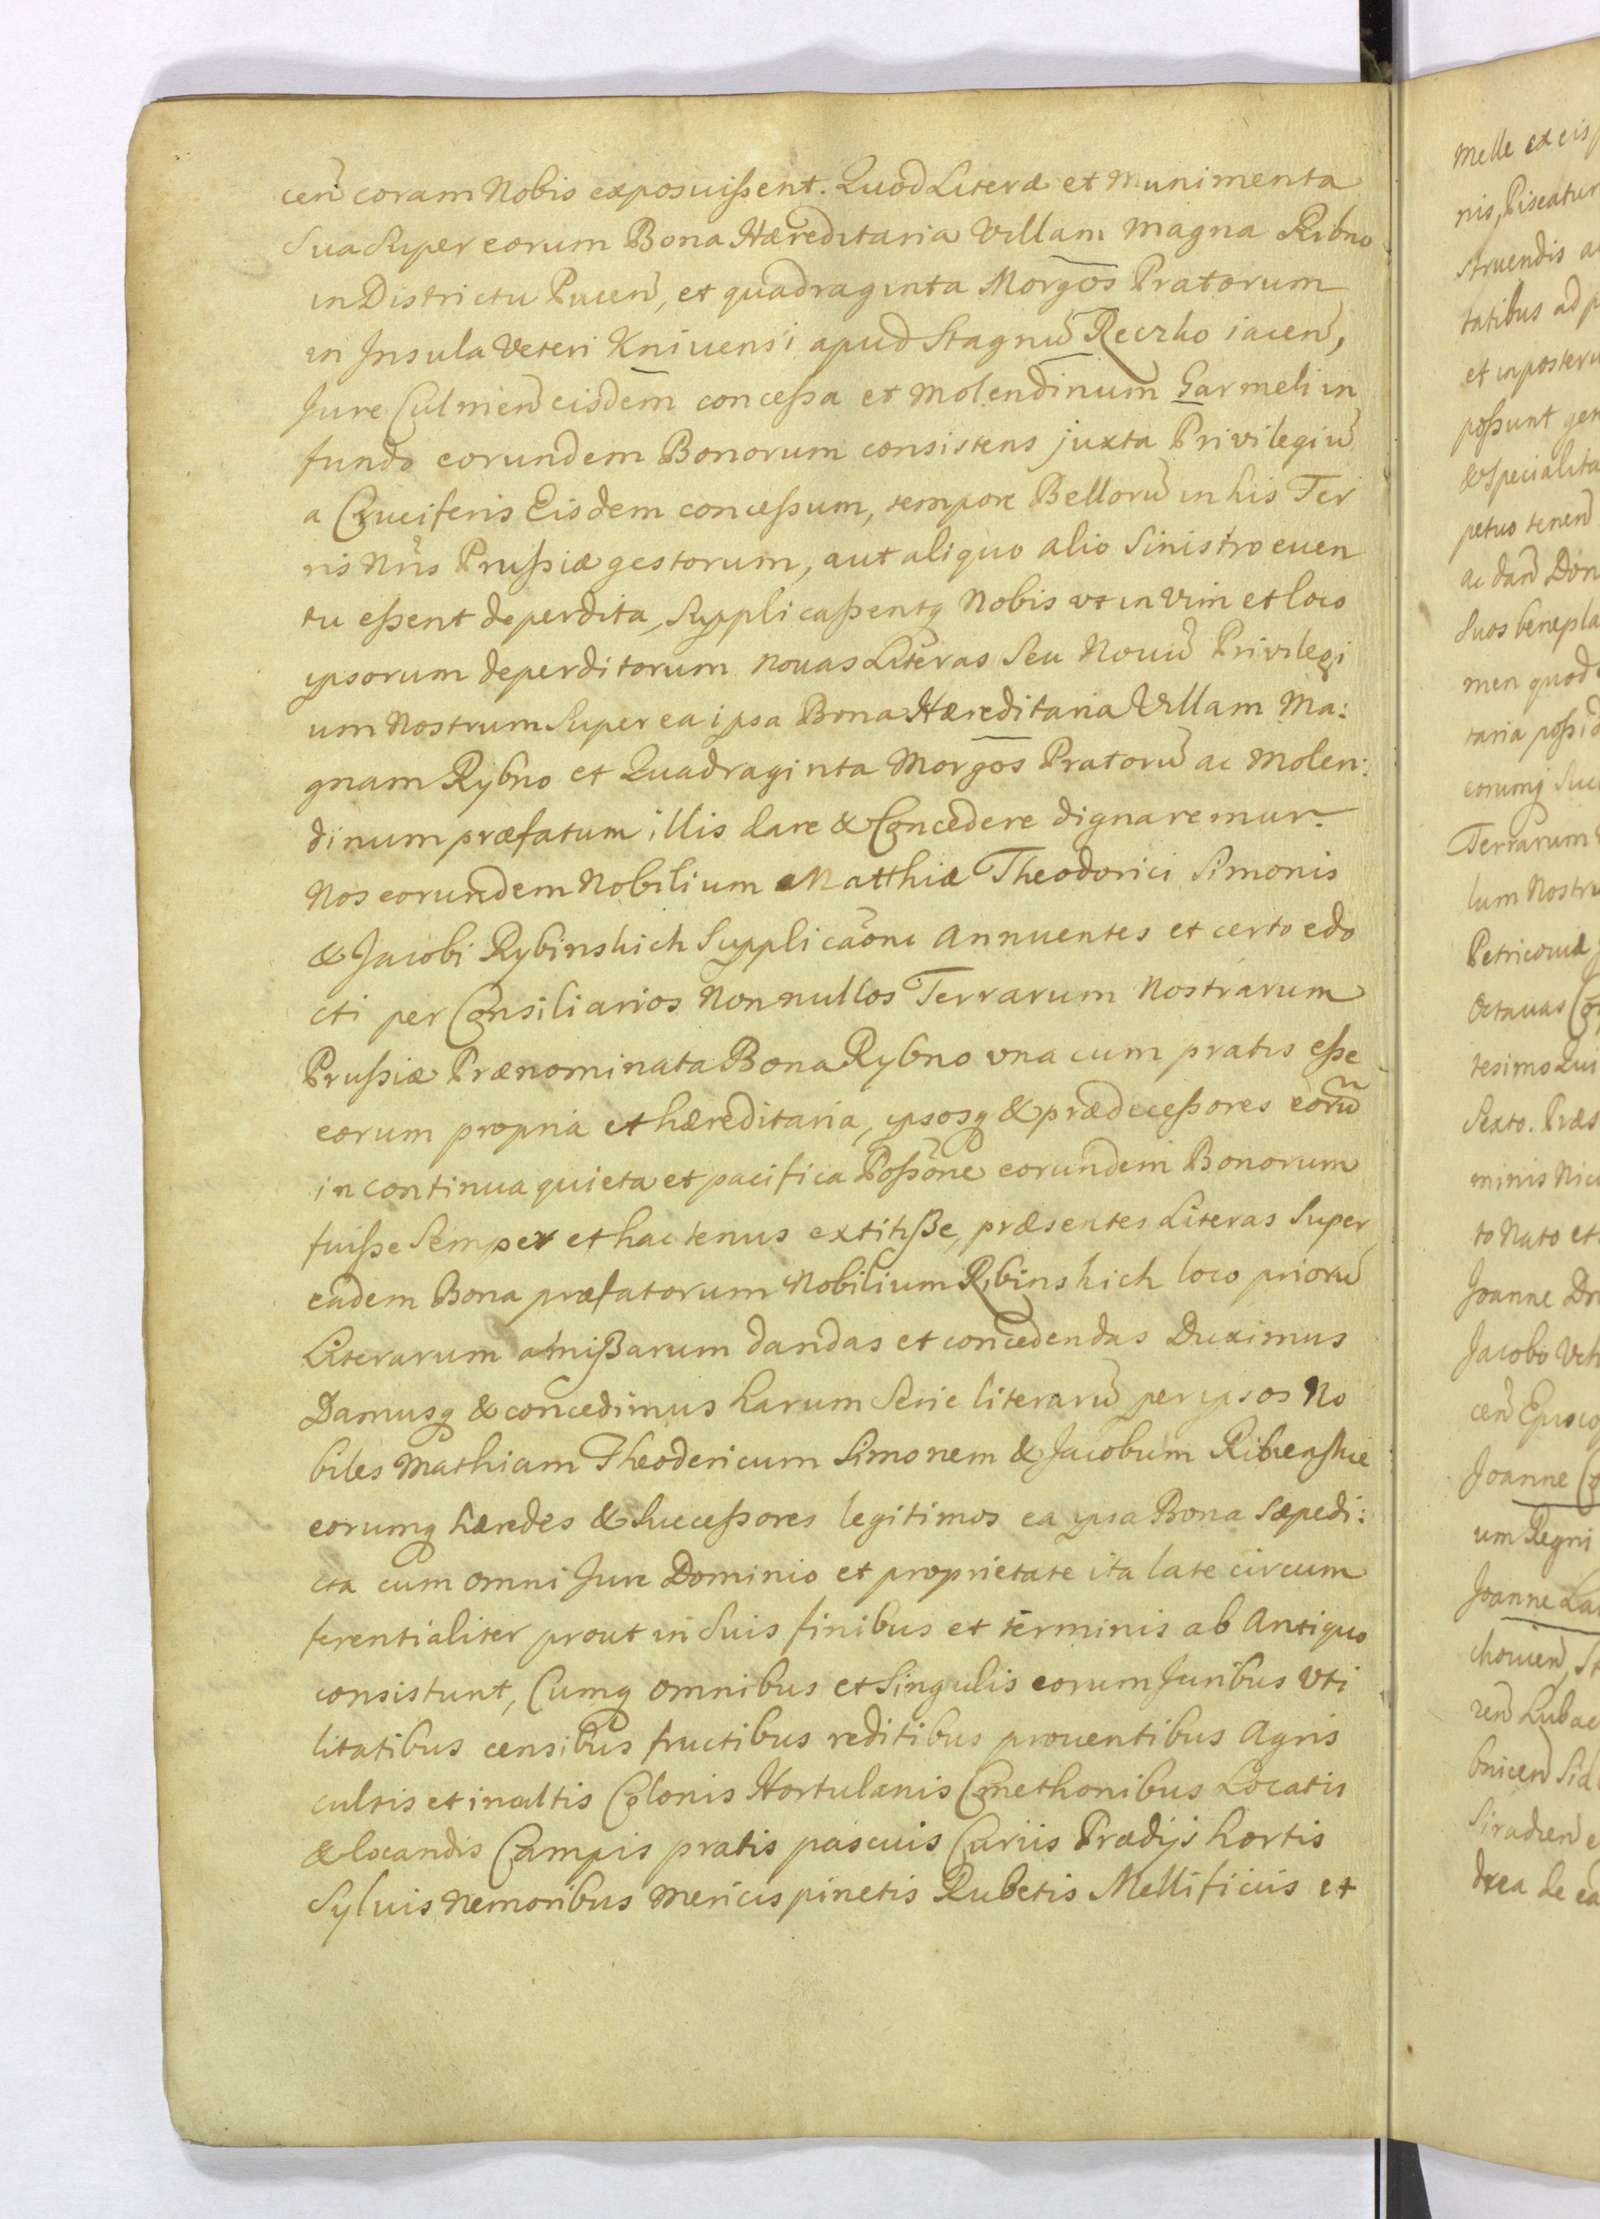 cen̄ coram Nobis exposuissent. Quod Literæ et Munimenta
Sua Super eorum Bona Hæreditaria Villam Magna Ribno
in Districtu Pucen̄, et quadraginta Morgos Pratorum
in Insula Veteri Knivensi apud Stagnū Reczko iacen̄,
Jure Culmen̄ eisdem concessa et Molendinum Garmeli in
fundo eorundem Bonorum consistens juxta Privilegiū
a Cruciferis Eisdem concessum, tempore Bellorū in his Ter
ris Nr̄is Prussiæ gestorum, aut aliquo alio Sinistro euen
tu essent deperdita, Supplicassentq Nobis vt in Vim et loco
ipsorum deperditorum nouas Literas Seu Nouū Privilegi
um Nostrum Super ea ipsa Bona Hæreditaria Villam Ma:
gnam Rybno et Quadraginta Morgos Pratorū ac Molen:
dinum præfatum illis dare & Concedere dignaremur.
Nos eorundem Nobilium Matthiæ Theodorici Simonis
& Jacobi Rybinskich Supplicāone annuentes et certo edo
cti per Consiliarios Nonnullos Terrarum Nostrarum
Prussiæ Prænominata Bona Rybno vna cum pratis esse
eorum propria et hæreditaria, ipsosq & prædecessores eorū
in continua quieta et pacifica Possōne eorundem Bonorum
fuisse Semper et hactenus extitisse, præsentes Literas Super
eadem Bona præfatorum Nobilium Ribinskich loco priorū
Literarum amissarum dandas et concedendas Duximus
Damusq & concedimus harum Serie literarū per ipsos No
biles Mathiam Theodericum Simonem & Jacobum
eorumq hæredes & Successores legitimos ea ipsa Bona Sæpedi:
cta cum omni Jure Dominio et proprietate ita late circum
ferentialiter prout in Suis finibus et terminis ab Antiquo
consistunt, Cumq omnibus et Singulis eorum Juribus Vti
litatibus censibus fructibus reditibus prouentibus Agris
cultis et incultis Colonis Hortulanis Cmethonibus Locatis
& locandis Campis pratis pascuis Curiis Prædijs hortis
Syluis Nemoribus Mericis pinetis Rubetis Mellificiis et